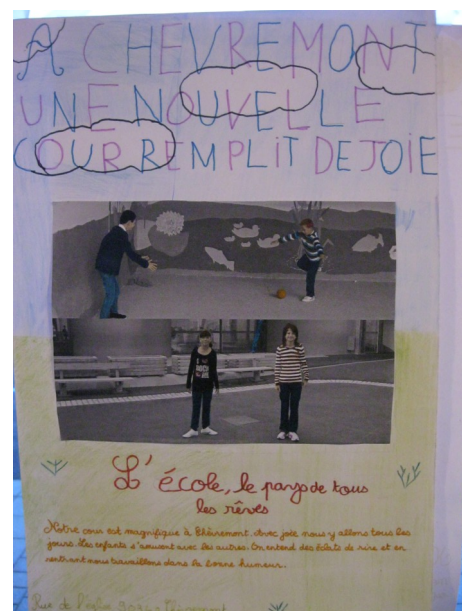 A CHEVREMONT
UNE NOUVELLE
COUR REMPLIT DE JOIE
L'école, le pays de tous
les rêves
Notre cour est magnifique à Chèvremont. Avec joie nous y allons tous les
jours. Les enfants s'amusent avec les autres. On entend des éclats de rire et en
rentrant nous travaillons dans la bonne humeur.
Rue de l'église